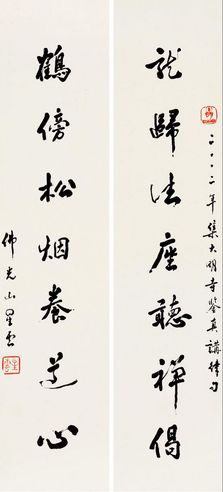 二〇〇二年集大明寺鑒真講律句
龍歸法座聽禪偈
鶴傍松烟養道心
佛光山星雲